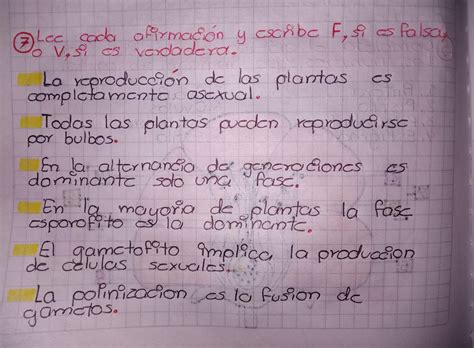 7 Lee cada afirmación y escribe F, si es falsa,
o V, si es verdadera.
La reproducción de las plantas es
completamente asexual.
Todas las plantas pueden reproducirse
por bulbos.
En la alternancia de generaciones es
dominante solo una fase.
En la mayoria de plantas la fase
esporofito es la dominante.
El gametofito implica la produccion
de celulas sexuales.
La polinizacion es la fusion de
gametos.